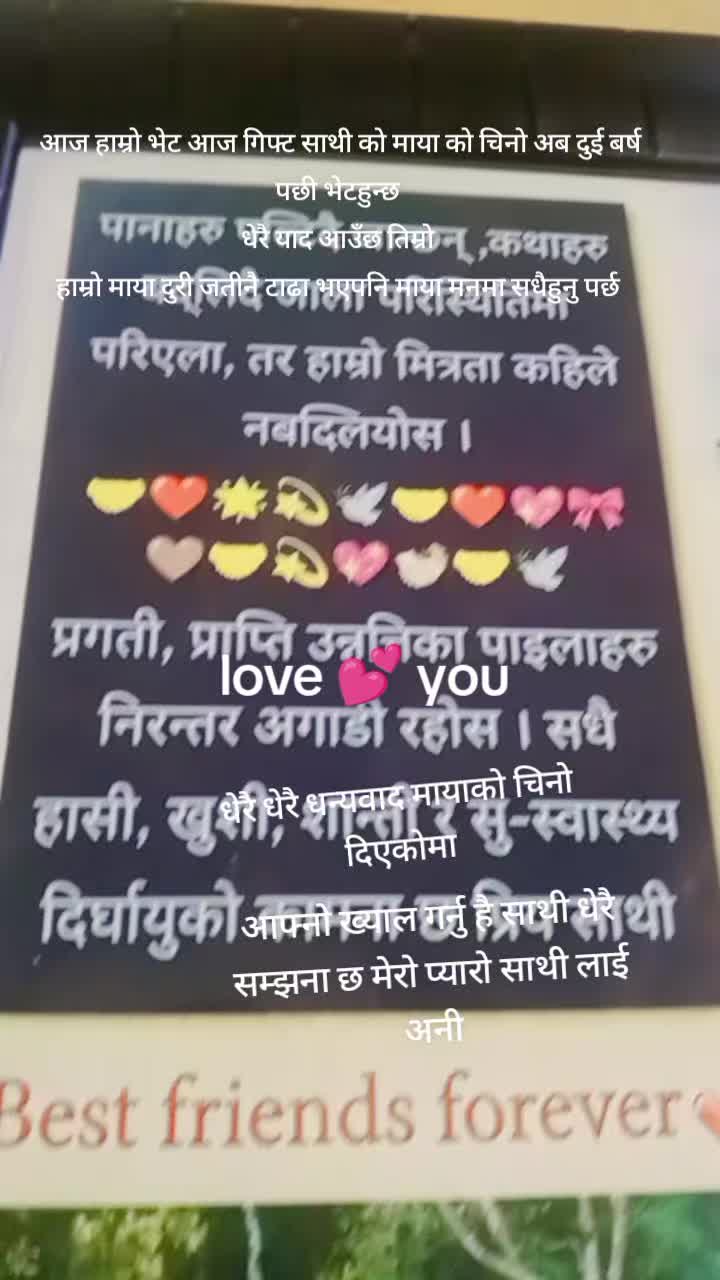 आज हाम्रो भेट आज गिफ्ट साथी को माया को चिनो अब दुई बर्ष
पछी भेटहुन्छ
धेरै याद आउँछ तिम्रो
पानाहरु ,कथाहरु
हाम्रो माया दुरी जतीनै टाढा भएपनि माया मनमा सधैहुनु पर्छ
परिस्थितिमा
परिएला, तर हाम्रो मित्रता कहिले
नबदलियोस ।
🤝❤️🌟💫🕊️🤝❤️💖🎀
🤝💫💖🤝🕊️
प्रगती, प्राप्ति उन्नतिका पाइलाहरु
love 💕 you
निरन्तर अगाडी रहोस । सधै
धेरै धेरै धन्यवाद मायाको चिनो
हासी, खुशी, शान्ती र सु-स्वास्थ्य
दिएकोमा
दिर्घायुको कामना छ प्रिय साथी
आफ्नो ख्याल गर्नु है साथी धेरै
सम्झना छ मेरो प्यारो साथी लाई
अनी
Best friends forever